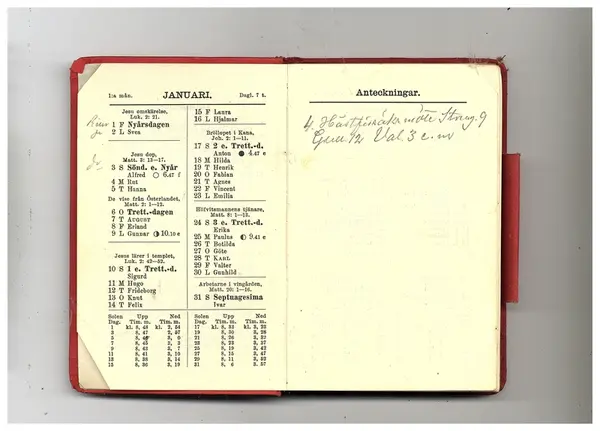 1:a mån. JANUARI. Dagl. 7 t.
Jesu omskärelse,
Luk. 2: 21.
1 F Nyårsdagen
2 L Svea
Jesu dop,
Matt. 3: 13–17.
3 S Sönd. e. Nyår
Alfred 6.47 f
4 M Rut
5 T Hanna
De vise från Österlandet,
Matt. 2: 1–12.
6 O Trett.-dagen
7 T AUGUST
8 F Erland
9 L Gunnar 10.10 e
Jesus lärer i templet,
Luk. 2: 42–52.
10 S 1 e. Trett.-d.
Sigurd
11 M Hugo
12 T Frideborg
13 O Knut
14 T Felix
15 F Laura
16 L Hjalmar
Bröllopet i Kana,
Joh. 2: 1–11.
17 S 2 e. Trett.-d.
Anton 4.47 e
18 M Hilda
19 T Henrik
20 O Fabian
21 T Agnes
22 F Vincent
23 L Emilia
Höfvitsmannens tjänare,
Matt. 8: 1–13.
24 S 3 e. Trett.-d.
Erika
25 M Paulus 9.41 e
26 T Botilda
27 O Göte
28 T KARL
29 F Valter
30 L Gunhild
Arbetarne i vingården,
Matt. 20: 1–16.
31 S Septuagesima
Ivar
Solen Upp Ned
Dag. Tim. m. Tim. m.
1 kl. 8, 48 kl. 2, 54
3 8, 47 2, 57
5 8, 46 3, 0
7 8, 45 3, 3
9 8, 43 3, 7
11 8, 41 3, 10
13 8, 38 3, 14
15 8, 36 3, 19
Solen Upp Ned
Dag. Tim. m. Tim. m.
17 kl. 8, 33 kl. 3, 23
19 8, 30 3, 28
21 8, 26 3, 32
23 8, 23 3, 37
25 8, 19 3, 42
27 8, 15 3, 47
29 8, 11 3, 52
31 8, 6 3, 57
Anteckningar.
4
Val 3 e. m